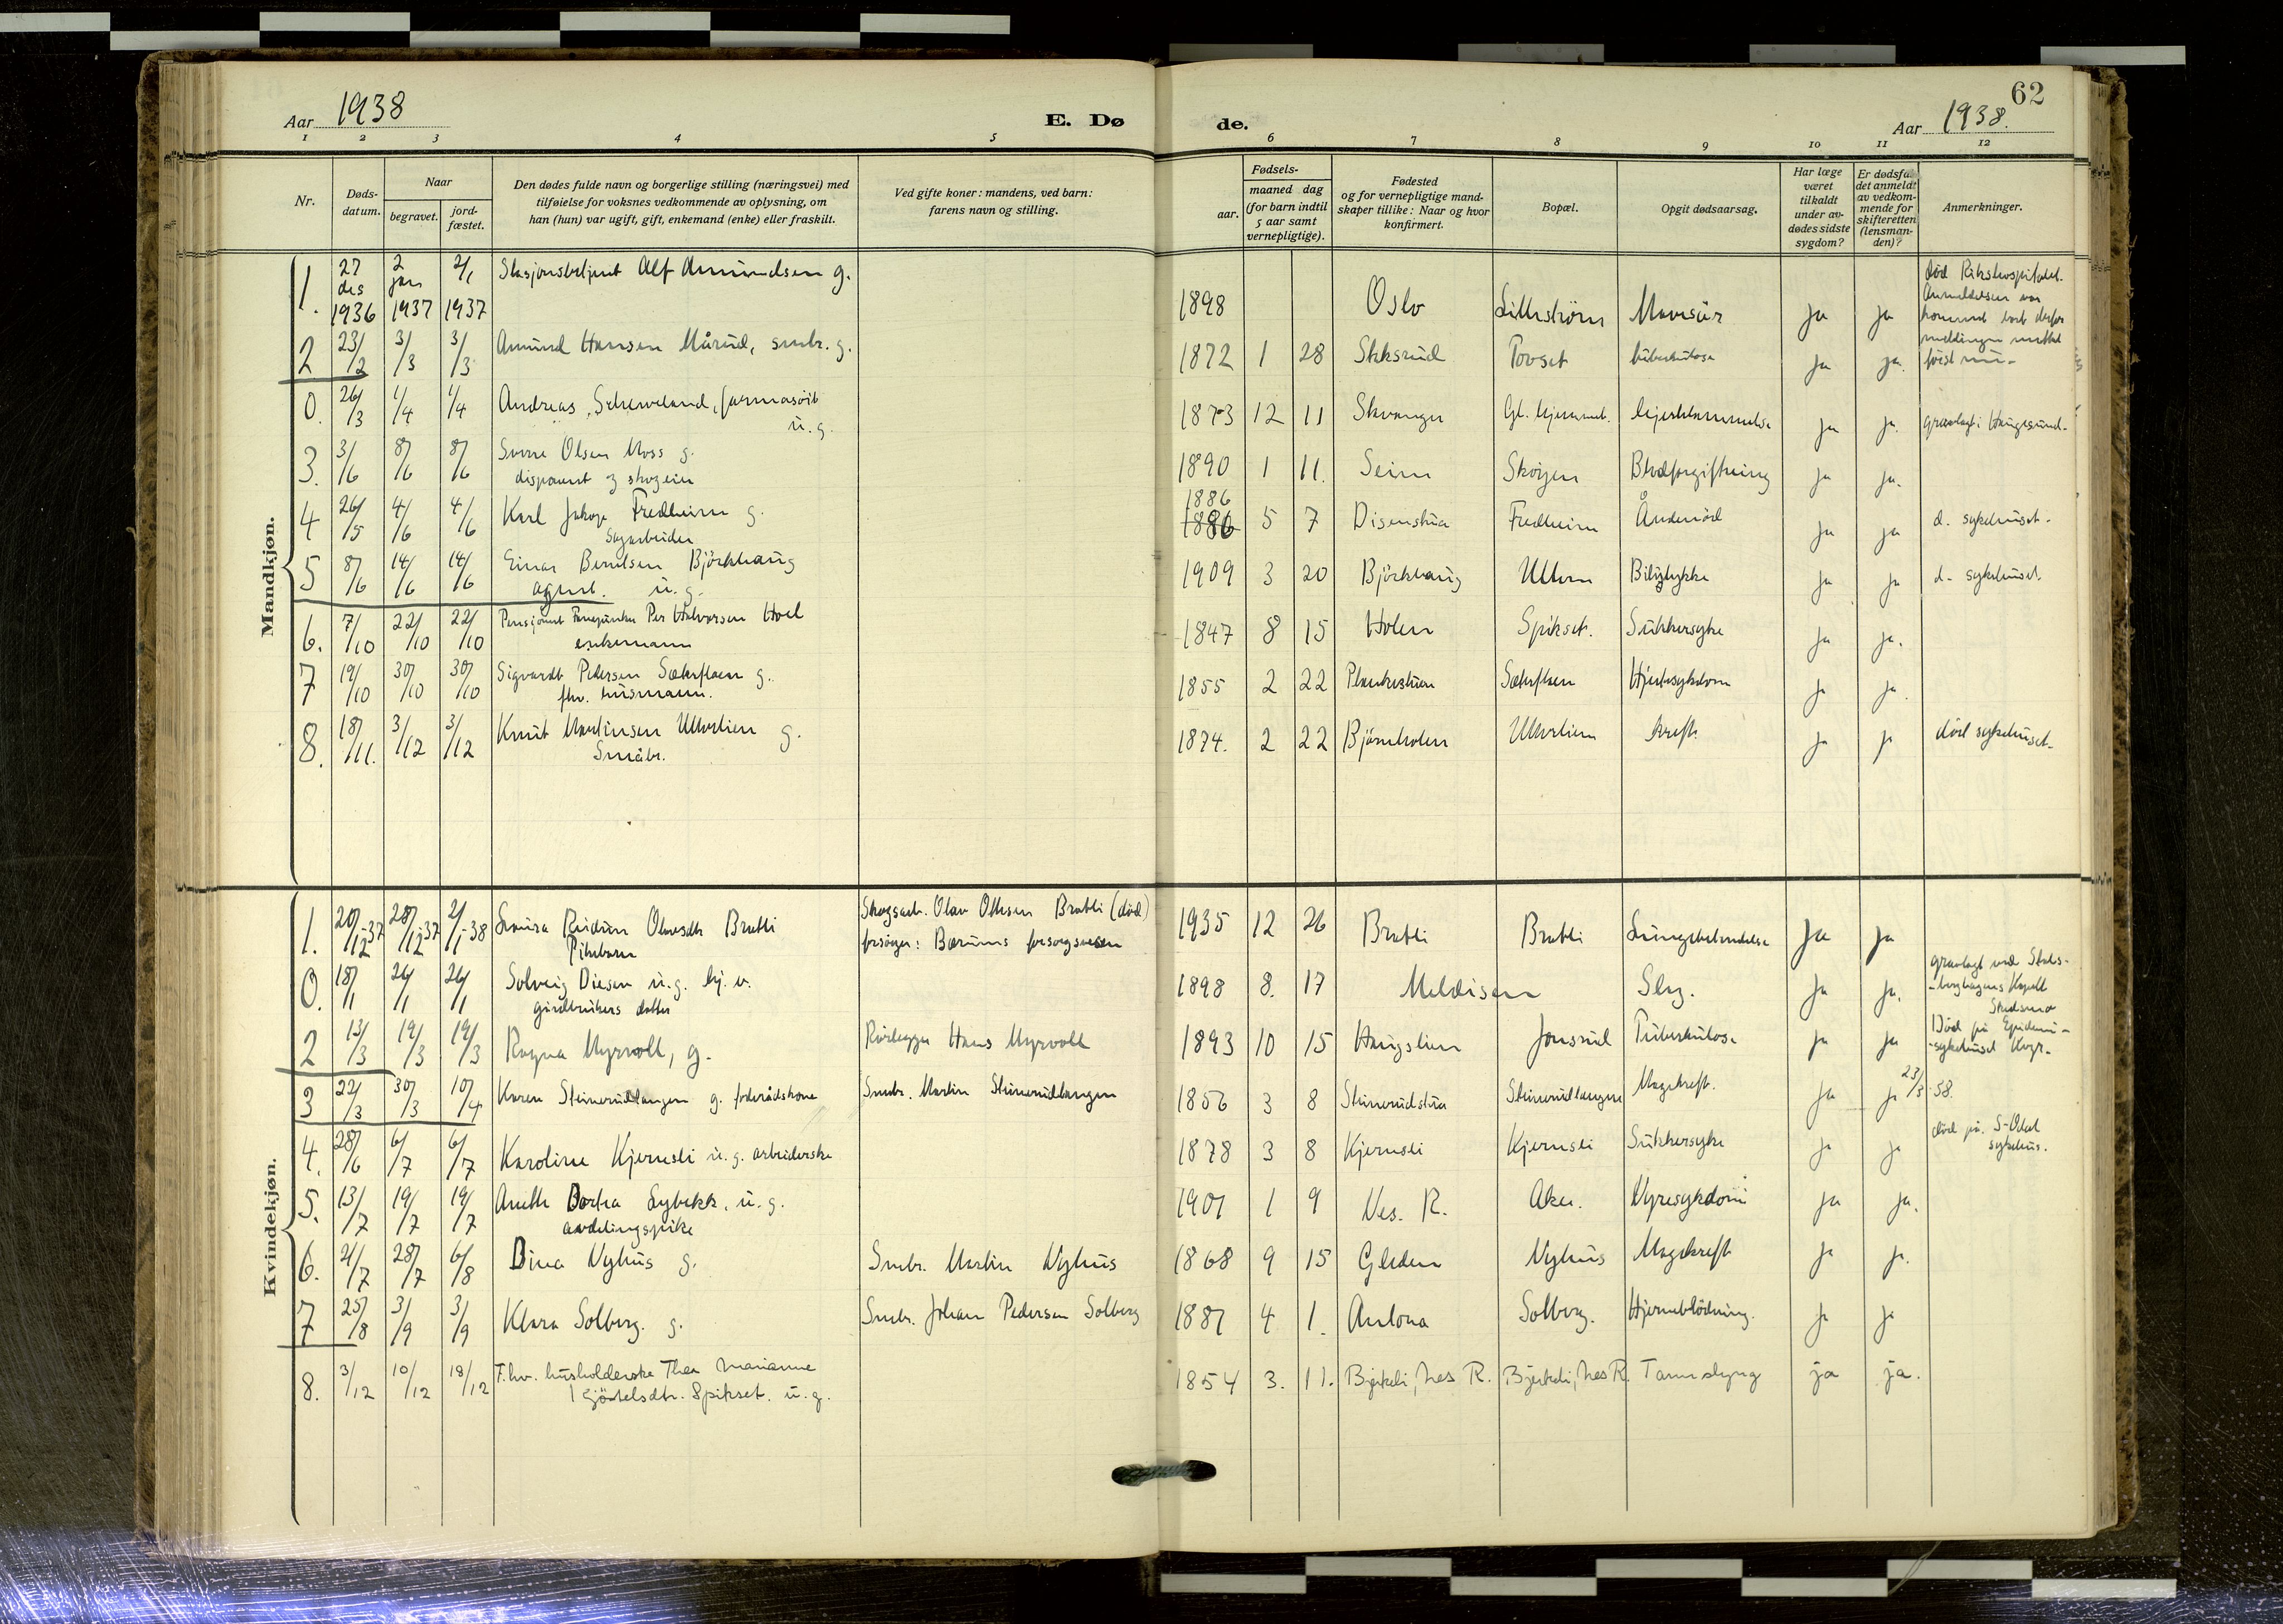 62
Aar 1938
E. Dø
de.
Aar 1938.
1 2 3 4 5 6 7 8 9 10 11 12
Nr.
Døds-
datum.
Naar
begravet.
jord-
fæstet.
Den dødes fulde navn og borgerlige stilling (næringsvei) med
tilføielse for voksnes vedkommende av oplysning, om
han (hun) var ugift, gift, enkemand (enke) eller fraskilt.
Ved gifte koner: mandens, ved barn:
farens navn og stilling.
Fødsels-
aar.
maaned dag
(for barn indtil
5 aar samt
vernepligtige).
Fødested
og for vernepligtige mand-
skaper tillike: Naar og hvor
konfirmert.
Bopæl.
Opgit dødsaarsag.
Har læge
været
tilkaldt
under av-
dødes sidste
sygdom?
Er dødsfal-
det anmeldt
av vedkom-
mende for
skifteretten
(lensman-
den)?
Anmerkninger.
Mandkjøn.
1. 27 des 1936 2 jan 1937 2/1 1937 Stasjonsbetjent Alf Amundsen g. 1898 Oslo Lillestrøm Mavesår ja ja død Rikshospitalet.
Anmeldelsen var
kommet bort derfor
meldingen mottat
først nu-
2 23/2 3/3 3/3 Amund Hansen Mårud, smbr. g. 1872 1 28 Stksrud Tovset tuberkulose ja ja.
0. 26/3 1/4 1/4 Andreas Scheveland, farmasöit
u. g. 1873 12 11 Stavanger Gl. hjemmet. hjertelammelse ja ja. gravlagt i Haugesund.
3. 3/6 8/6 8/6 Sverre Olsen Moss g.
disponent og skogeier 1890 1 11. Seim Skøyen Blodforgiftning ja ja.
4 26/5 4/6 4/6 Karl Fredheim g.
Sagarbeider 1886
1886 5 7 Disenstua Fredheim Åndenød ja ja d. sykehuset.
5 8/6 14/6 14/6 Einar Berntsen Björkhaug
agent. u. g. 1909 3 20 Björkhaug Ullern Bilulykke ja ja d. sykehuset.
6. 7/10 22/10 22/10 Pensjonert Per Halvorsen Hoel
enkemann 1847 8 15 Holen Spikset. Sukkersyke ja ja.
7 19/10 30/10 30/10 Sigvardt Pedersen Sæterfloen g.
fhv. husmann. 1855 2 22 Plankestua Sæterfloen Hjertesykdom ja ja.
8. 18/11. 3/12 3/12 Knut Martinsen Ulverlien g.
Småbr. 1874. 2 22 Björnholen Ulverlien kreft. ja ja død sykehuset.
Kvindekjøn.
1. 20/12-37 28/12-37 2/1-38 Laura Reidun Olavsdtr Bratli
Pikebarn Skogsarb. Olav Ottesen Bratli (død)
forsørger: Bærums forsorgsvesen 1935 12 26 Bratli Bratli Lungebetendelse ja ja
0. 18/1 24/1 24/1 Solveig Diesen u.g. hj. v.
gårdbrukers datter 1898 8. 17 Meldisen Slag. ja ja. gravlagt ved Stals-
-berghagens Kapell
Skedsmo
2 13/3 19/3 19/3 Ragna Myrvold, g. Rörlegger Hans Myrvold 1893 10 15 Haugslien Jonsrud Tuberkulose ja ja Død på Epidemi-
-sykehuset Kvgr.
3 22/3 30/3 10/4 Karen Steinerudtangen g. føderådskone Smbr. Martin Steinerudtangen 1856 3 8 Steinerudstua Steinerudtangen Magekreft. ja ja 23/3 38.
4. 28/6 6/7 6/7 Karoline Kjernsli u.g. arbeiderske 1878 3 8 Kjernsli Kjernsli Sukkersyke ja ja død på S-Odal
sykehus.
5. 13/7 19/7 19/7 Anette Bortea Lybekk, u. g.
avdelingspike 1901 1 9 Nes. R. Aker. Nyresykdom ja ja.
6. 21/7 28/7 6/8 Dina Nyhus g. Smbr. Martin Nyhus 1868 9 15 Gladen Nyhus Magekreft ja ja.
7 25/8 3/9 3/9 Klara Solberg. g. Smbr. Johan Pedersen Solberg 1887 4 1. Antona Solberg. Hjerneblödning. ja ja
8. 3/12 10/12 18/12 F. hv. husholderske Thea Marianne
Kjöstelsdtr. Spikset. u. g. 1854 3. 11. Bjerkeli, Nes R. Bjerkeli, Nes R. Tarmslyng ja ja.